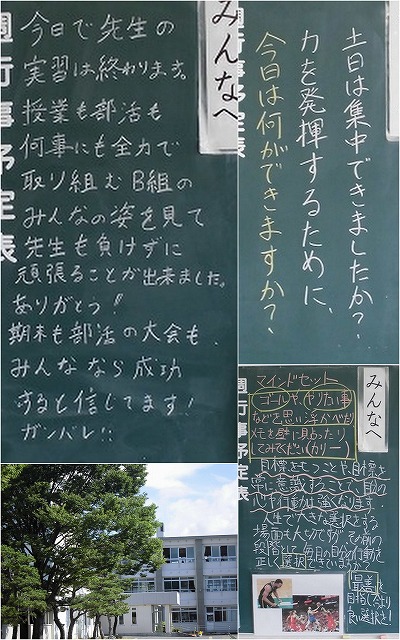 みんなへ
週行事予定表
今日で先生の
実習は終わります。
授業も部活も
何事にも全力で
取り組むB組の
みんなの姿を見て
先生も負けずに
頑張ることが出来ました。
ありがとう!
期末も部活の大会も、
みんななら成功
すると信じてます!
ガンバレ!!
土日は集中できましたか?
力を発揮するために、
今日は何ができますか?
行事予定表
みんなへ
週行事予定表
マインドセット
ゴールや、やりたい事
などを思い浮かべたり
メモを壁に貼ったり
してみてください(カリー)
目標をもつことや目標を
常に意識することで、自分の
心や行動は強くなります。
人生で大きな選択をする
場面も大切ですが、その前の
段階として毎月の自分の行動を
正しく選択できているかな?
最善を
目指したより
良い選択を!